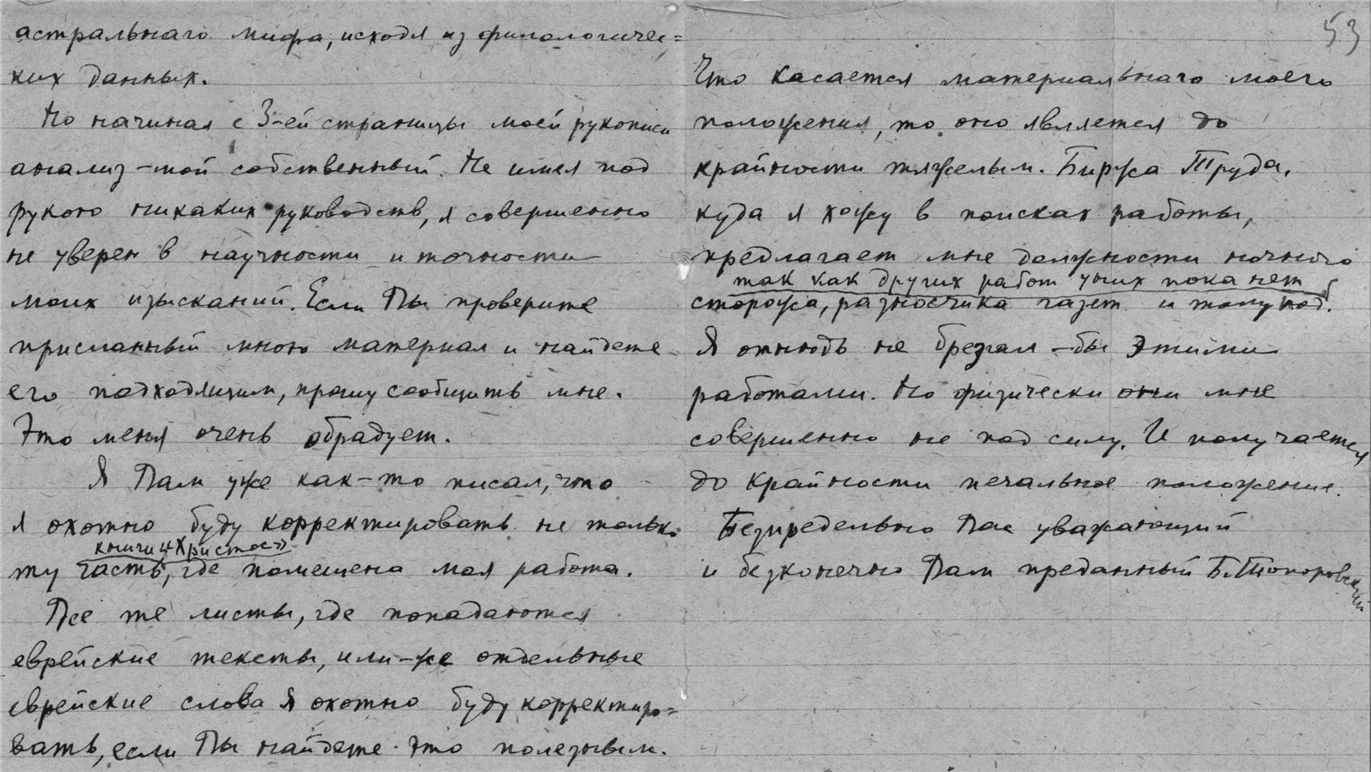 астральнаго мифа, исходя из филологичес=
ких данных.
Но начиная с 3-ей страницы моей рукописи
анализ - мой собственный. Не имея под
рукою никаких руководств, я совершенно
не уверен в научности и точности
моих изысканий. Если Вы проверите
присланный мною материал и найдете
его подходящим, прошу сообщить мне.
Это меня очень обрадует.
Я Вам уже как-то писал, что
я охотно буду корректировать не только
книги "Христос"
ту часть, где помещена моя работа.
Все же листы, где попадаются
еврейские тексты, или-же отдельные
еврейские слова я охотно буду корректиро=
вать, если Вы найдете это полезным.
53
Что касается материальнаго моего
положения, то оно является до
крайности тяжелым. Биржа Труда,
куда я хожу в поисках работы,
предлагает мне должности ночного
так как других работ у них пока нет
сторожа, разносчика газет и тому под.
Я отнюдь не брезгал-бы этими
работами. Но физически они мне
совершенно не под силу. И получается
до крайности печальное положение.
Безпредельно Вас уважающий
и безконечно Вам преданный Б. Топоровский